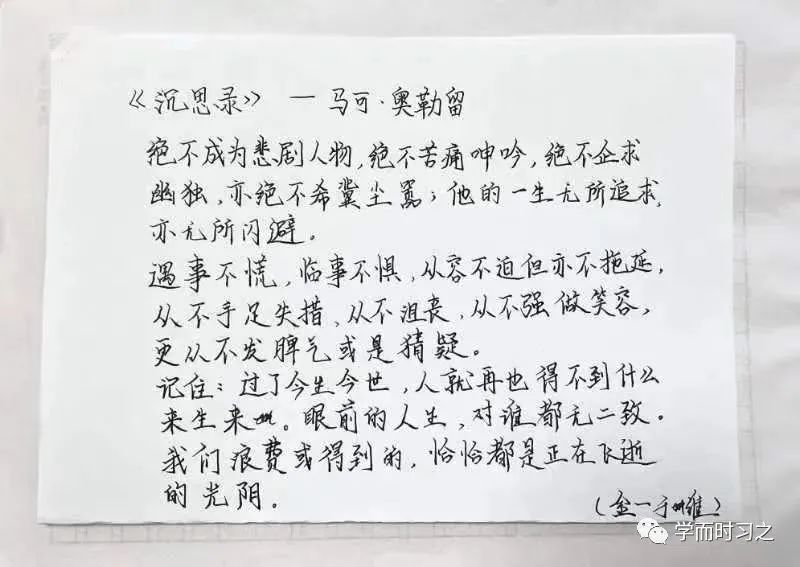 《沉思录》 — 马可·奥勒留
绝不成为悲剧人物,绝不苦痛呻吟,绝不企求
幽独,亦绝不希冀尘嚣;他的一生无所追求,
亦无所闪避。
遇事不慌,临事不惧,从容不迫但亦不拖延,
从不手足失措、从不沮丧,从不强做笑容,
更从不发脾气或是猜疑。
记住:过了今生今世,人就再也得不到什么
来生来世。眼前的人生,对谁都无二致。
我们浪费或得到的,恰恰都是正在飞逝
的光阴。
学而时习之